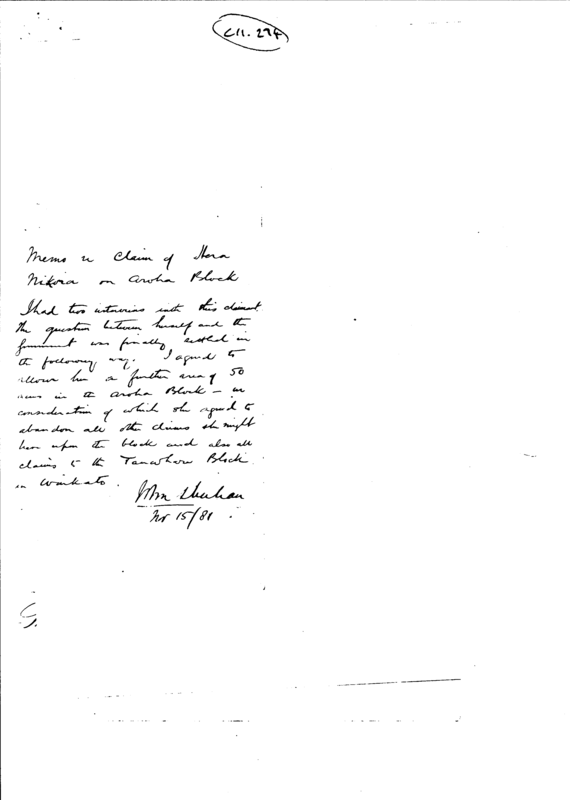 C11. 274
Memo re Claim of Hera
Nikora on Aroha Block
I had two interviews with this claimant.
The question between herself and the
Government was finally settled in
the following way. I agreed to
allow her a further area of 50
acres in the Aroha Block – in
consideration of which she agreed to
abandon all other claims she might
have upon the block and also all
claims to the Block
in Waikato.
John Sheehan
Nov 15/81
G.